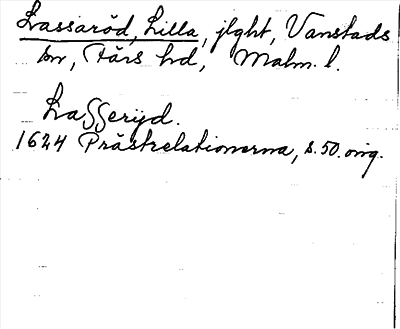 Lassaröd, Lilla, jlght, Vanstads
sn, Färs hd, Malm. l.
Lasseryd.
1624 Prästrelationerna, s. 50. orig.